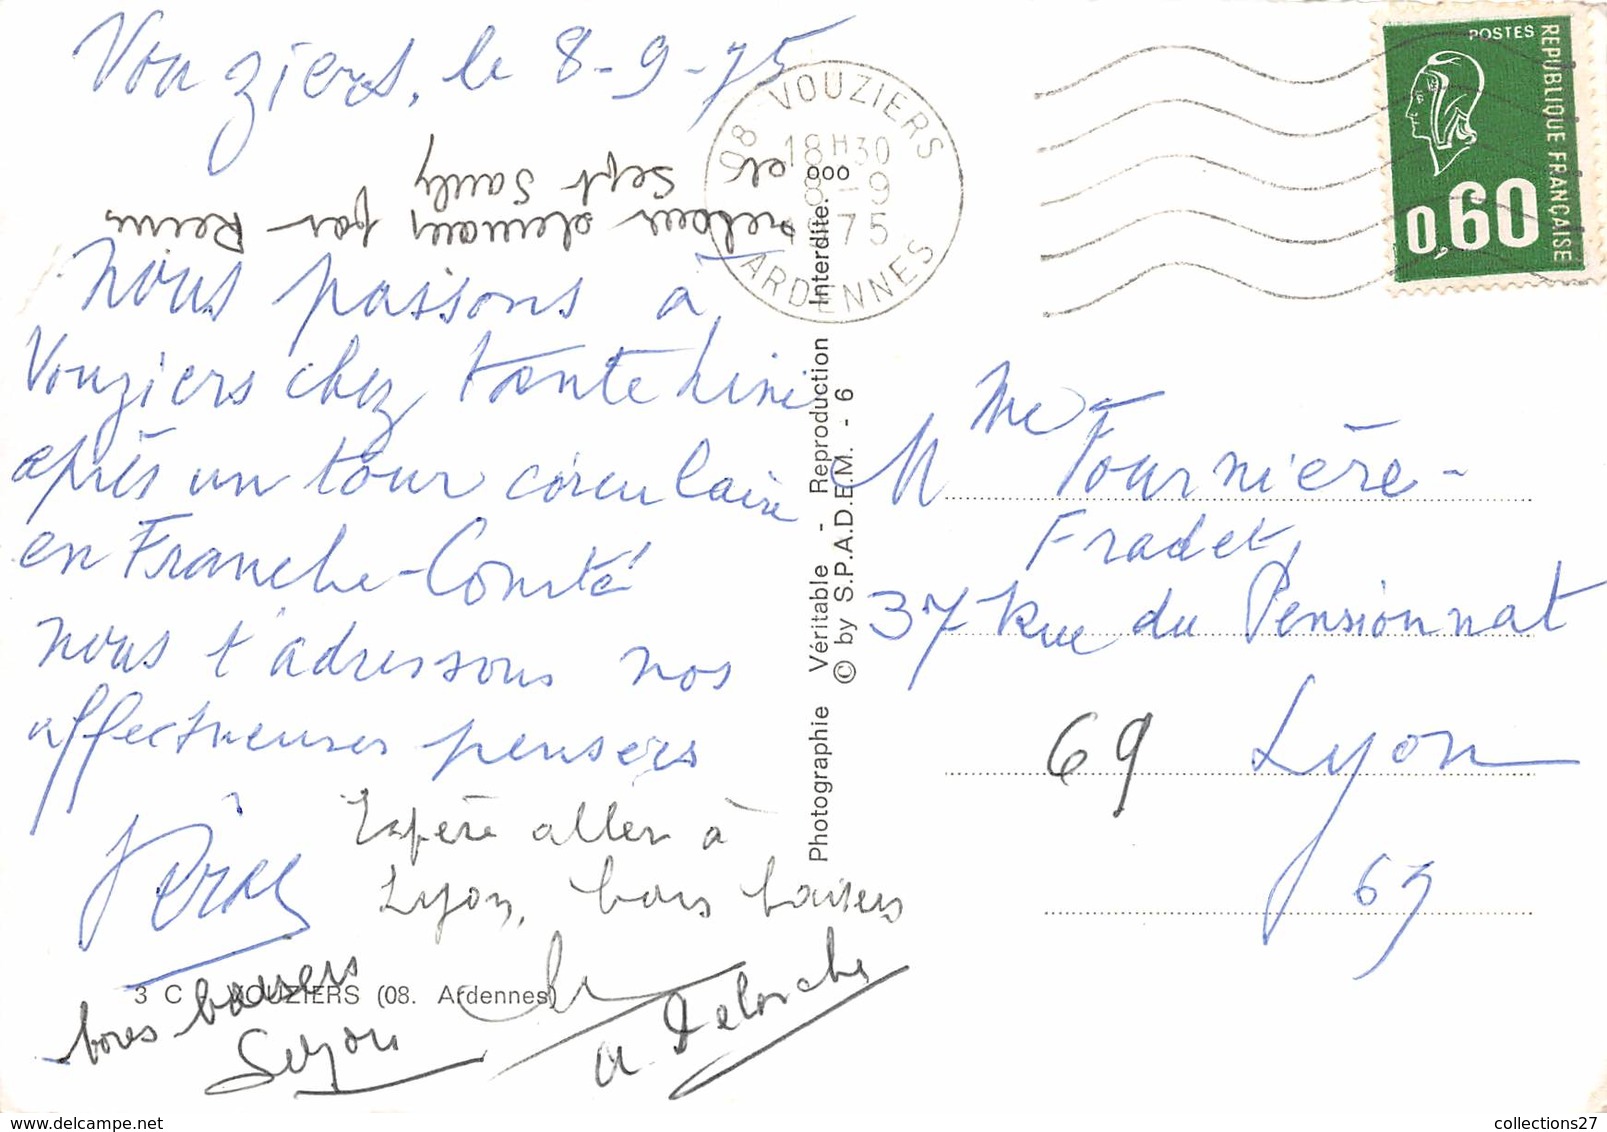 Vouziers, le 8-9-75
retour demain par Reims
et Sept Saulx
Nous passons à
Vouziers chez tante Lini
après un tour circulaire
en Franche-Comté
nous t'adressons nos
affectueuses pensées
Espère aller à
Lyon, bons baisers
bons baisers
Suzon
a Delorche
3 C VOUZIERS (08. Ardennes)
Photographie Véritable - Reproduction Interdite. 000
© by S.P.A.D.E.M. - 6
08 VOUZIERS
18H30
8-9
1975
ARDENNES
POSTES
REPUBLIQUE FRANÇAISE
0,60
Mme Fournière-
Fradet,
37 Rue du Pensionnat
69 Lyon
69
collections27